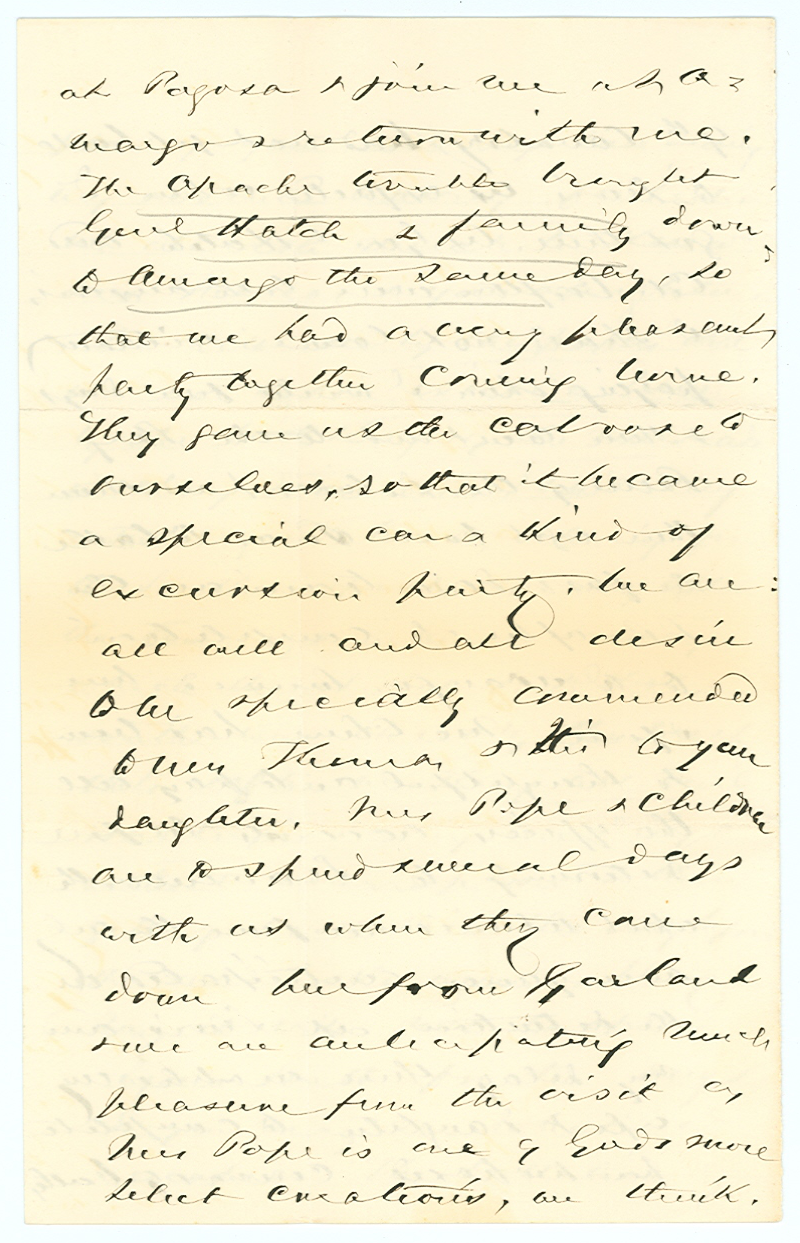 at Pagosa & join me at A-
margo & return with me.
The Apache trouble brought
Genl Hatch & family down
to Amargo the same day, so
that we had a very pleasant
party together coming home.
They gave us the caboose to
ourselves, so that it became
a special car a kind of
excursion party. We are
all well and all desire
to be specially commended
to Mrs Thomas & to your
daughter. Mrs Pope & children
are to spend several days
with us when they come
down here from Garland
& we are anticipating much
pleasure from the visit as
Mrs Pope is one of Gods more
select creations, we think.